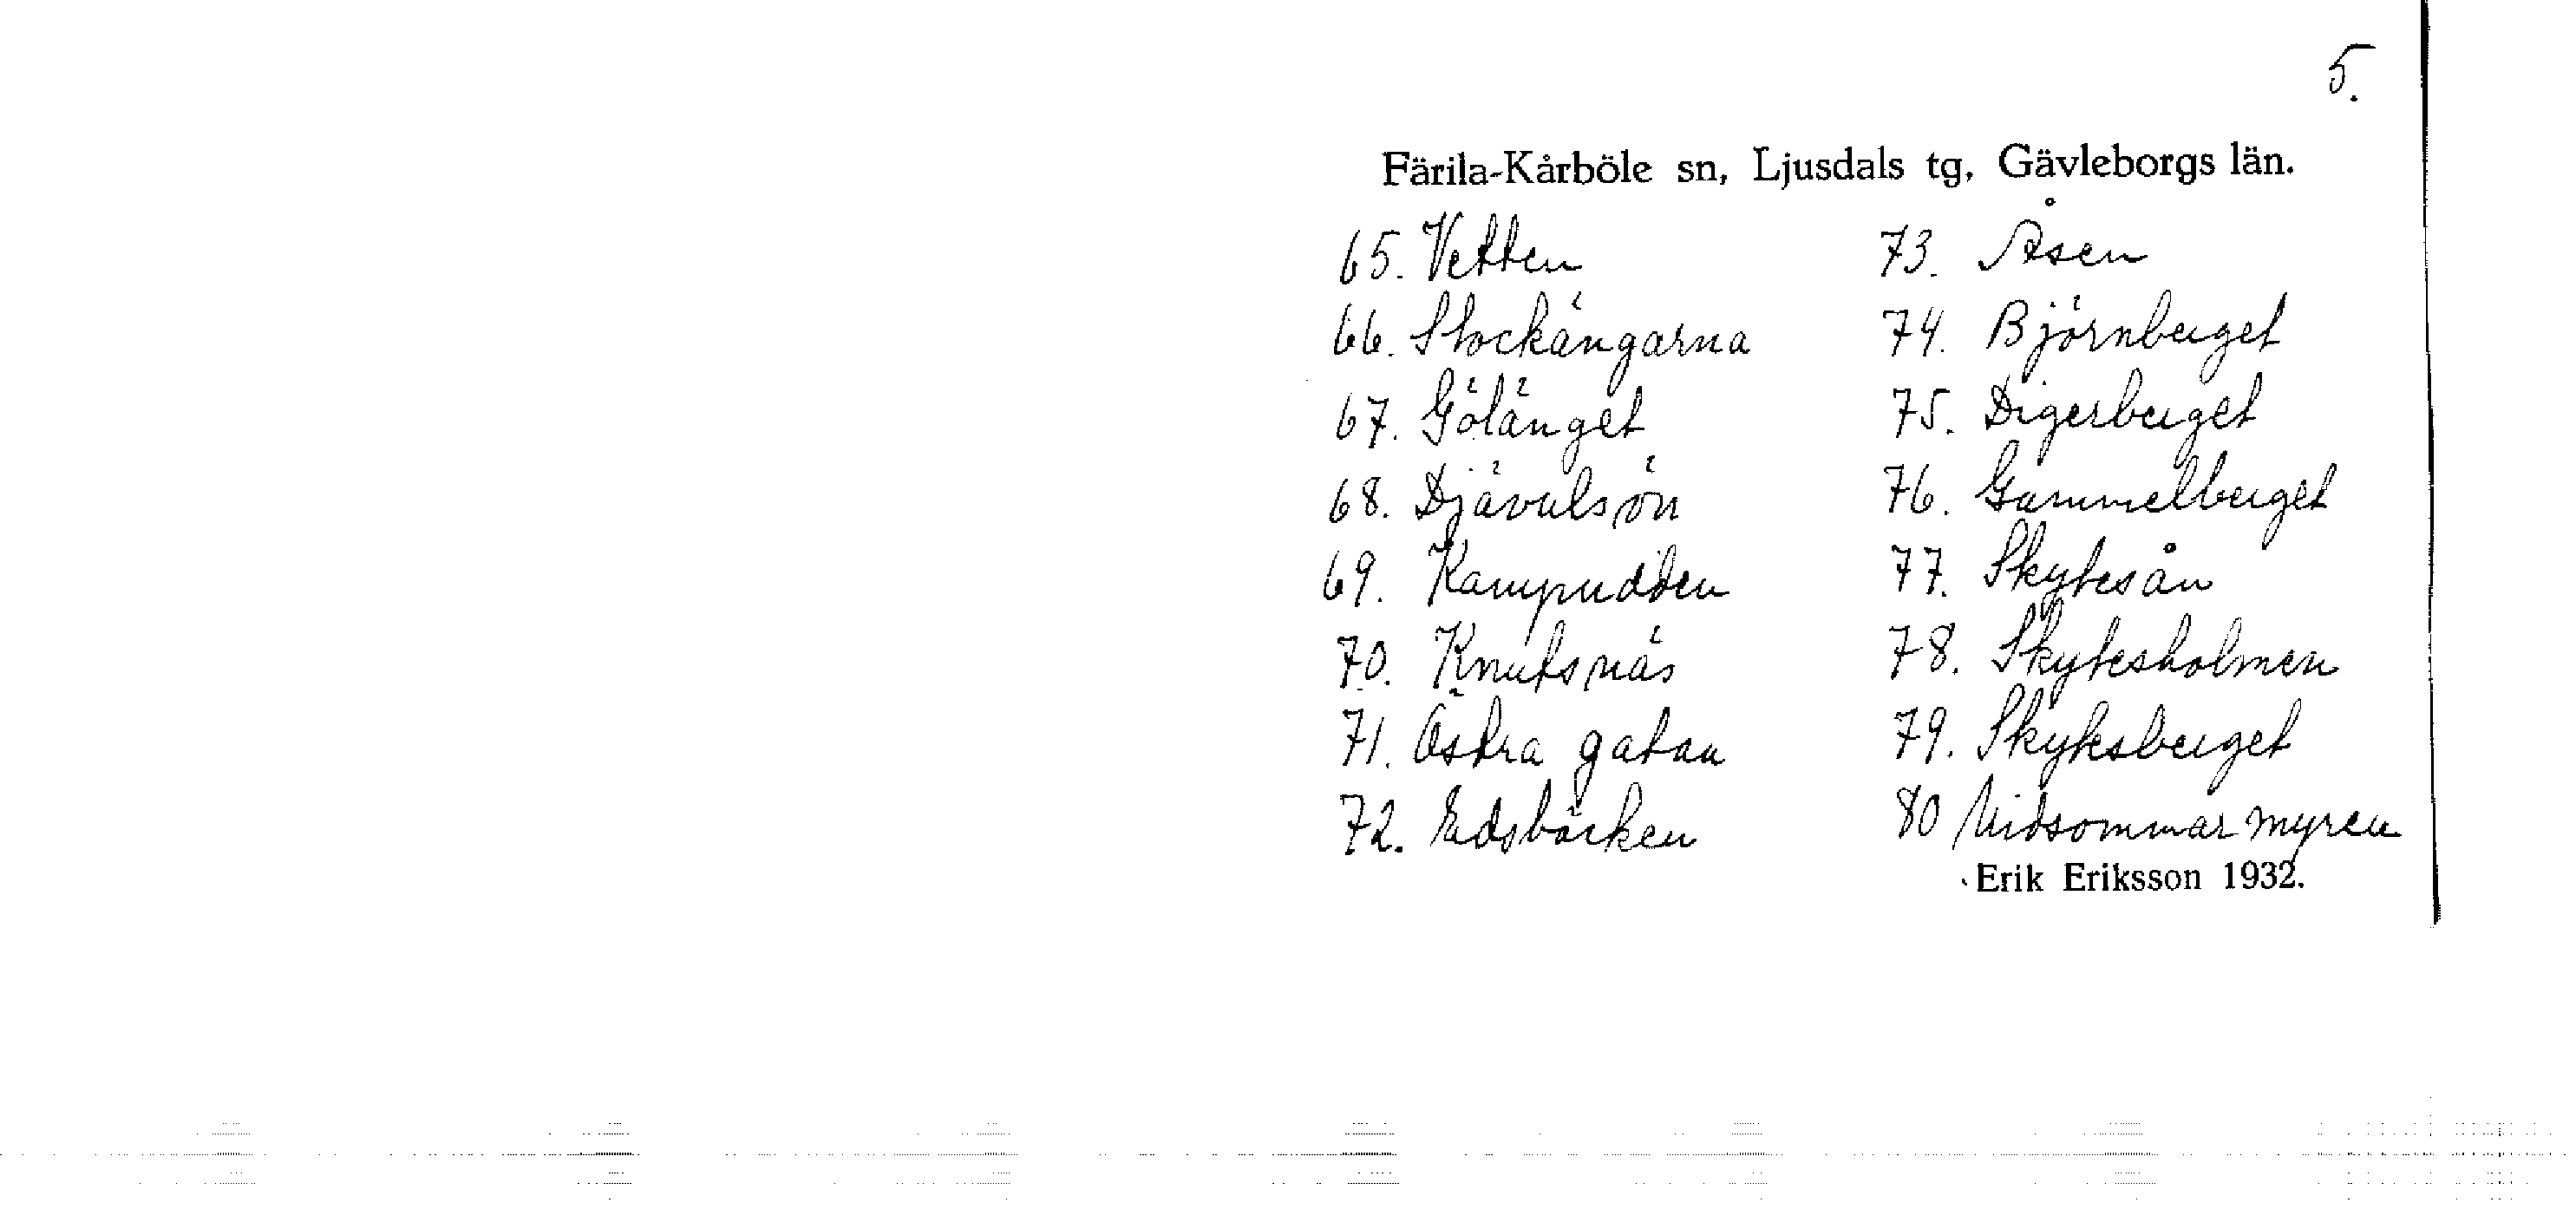 5.
Färila-Kårböle sn, Ljusdals tg, Gävleborgs län.
65. Vetten
66. Stockängarna
67. Gölänget
68. Djävulsön
69. Kampudden
70. Knutsnäs
71. Östra gatan
72. Edsbäcken
73. Åsen
74. Björnberget
75. Digerberget
76. Gammelberget
77. Skytesån
78. Skytesholmen
79. Skytesberget
80 Midsommarmyren
Erik Eriksson 1932.